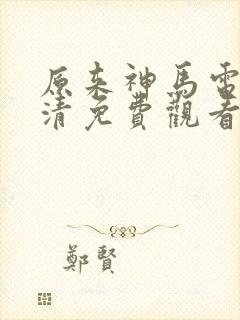 原来神馬電
清免費觀看
鄭賢